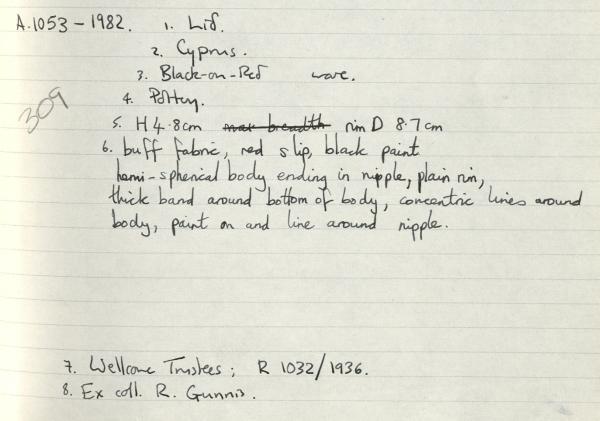 A.1053-1982. 1. Lid.
2. Cyprus.
3. Black-on-Red ware.
4. Pottery.
309
5. H 4.8cm max breadth rim D 8.7cm
6. buff fabric, red slip, black paint
hemi-spherical body ending in nipple, plain rim,
thick band around bottom of body, concentric lines around
body, paint on and line around nipple.
7. Wellcome Trustees; R 1032/1936.
8. Ex coll. R. Gunnis.